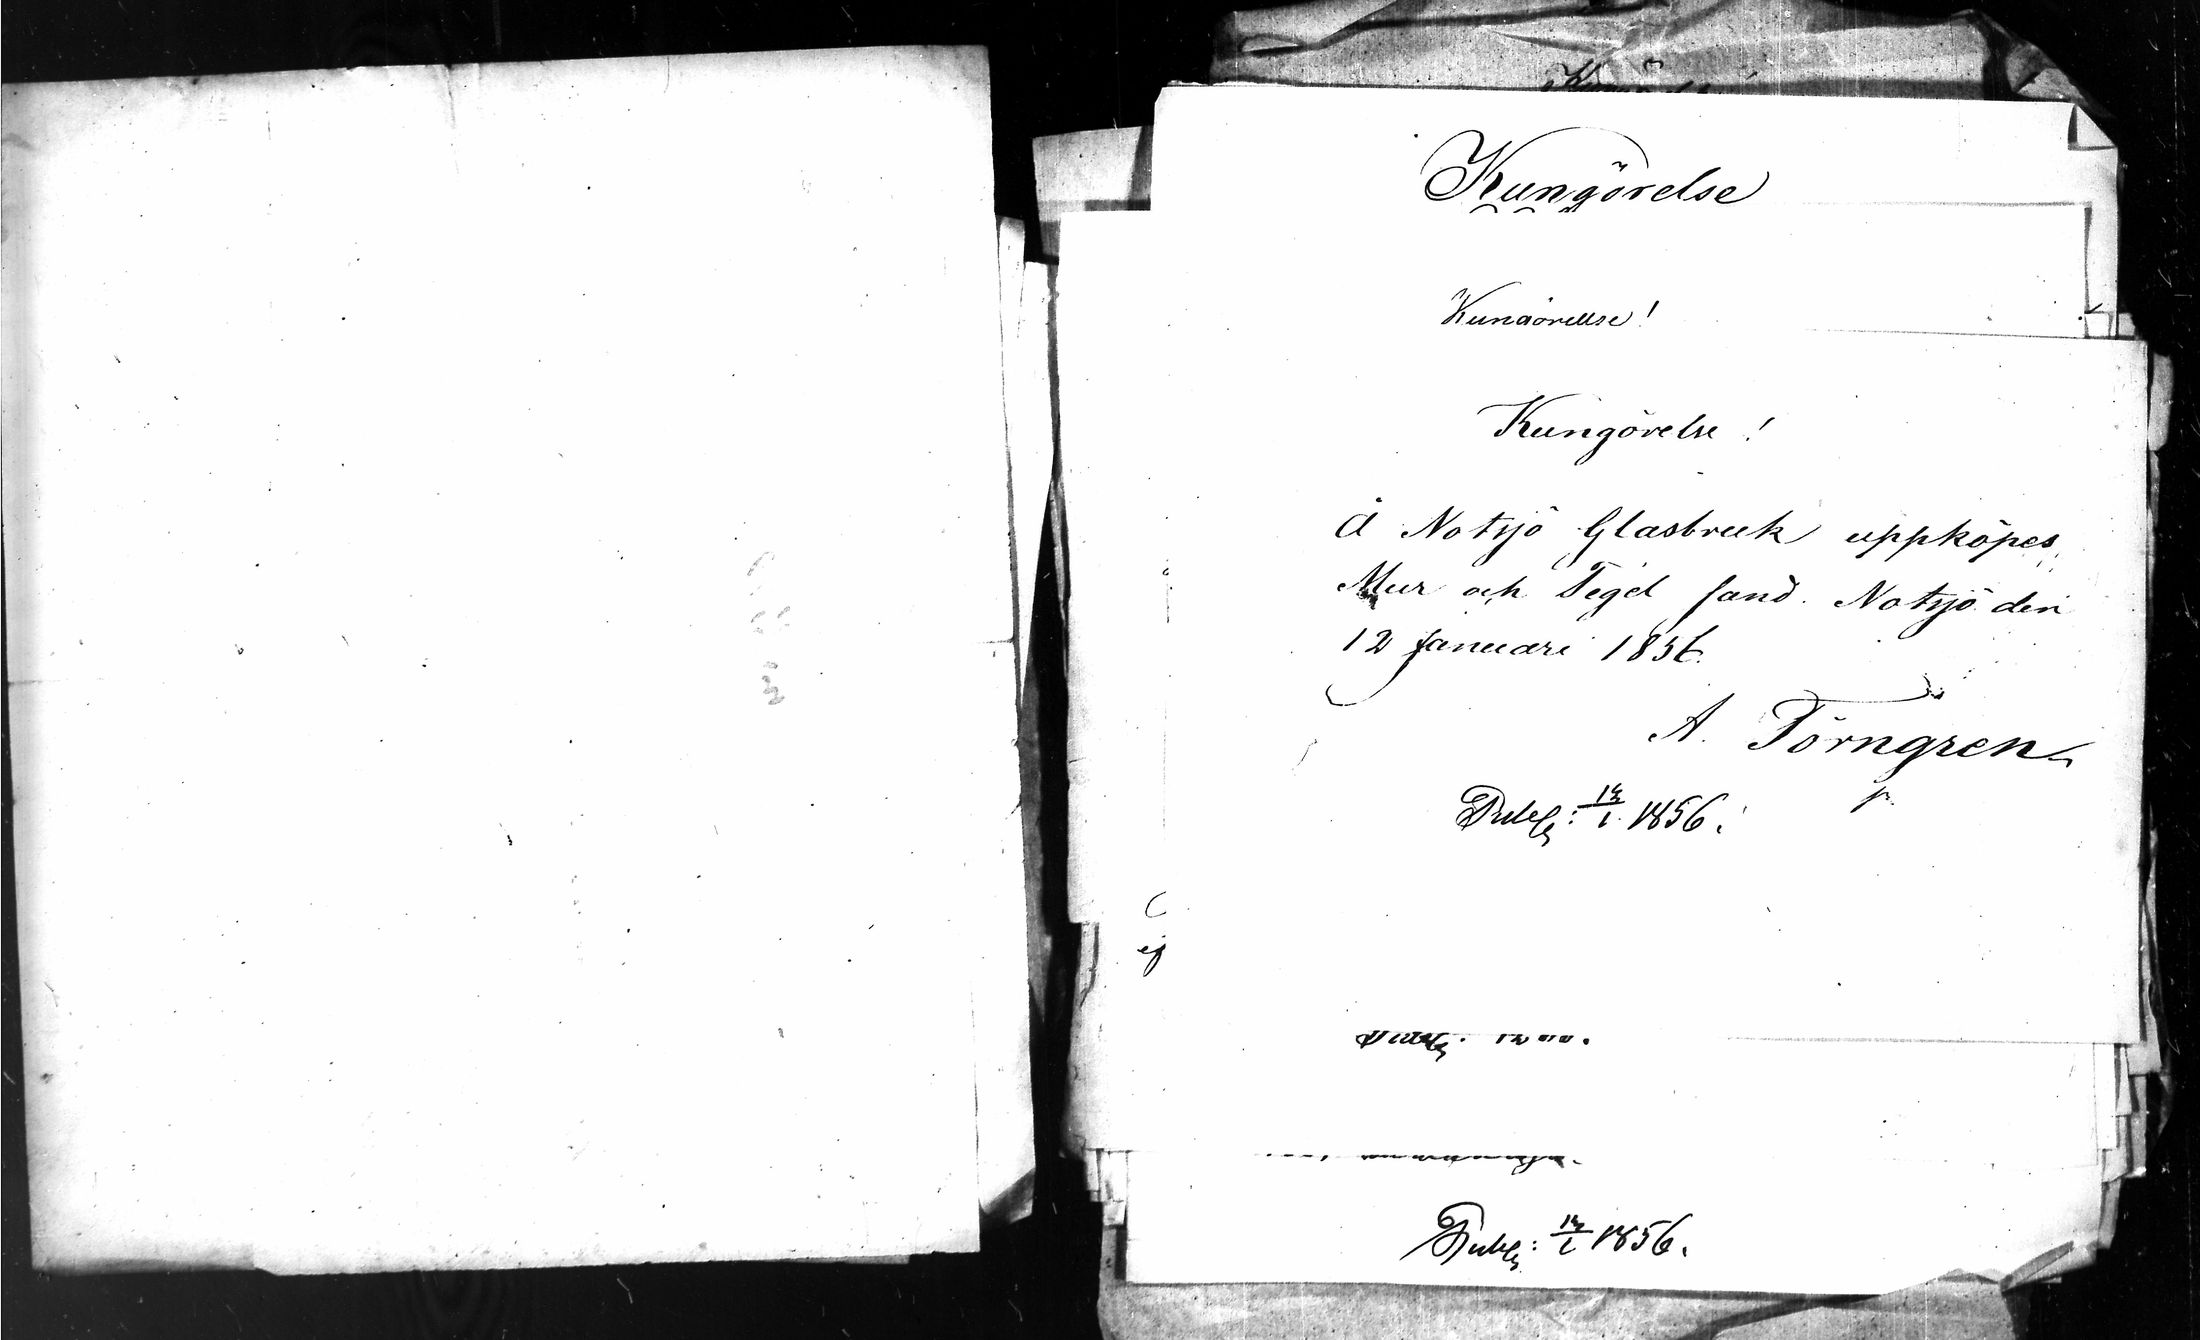 Kungörelse
Kungörelse!
Kungörelse!
Å Notsjö Glasbruk uppköpes
Mur och Tegel sand. Notsjö den
12 Januari 1856.
A. Törngren
Publ: 13/1 1856.
ej
Publ: 13/1 1856.